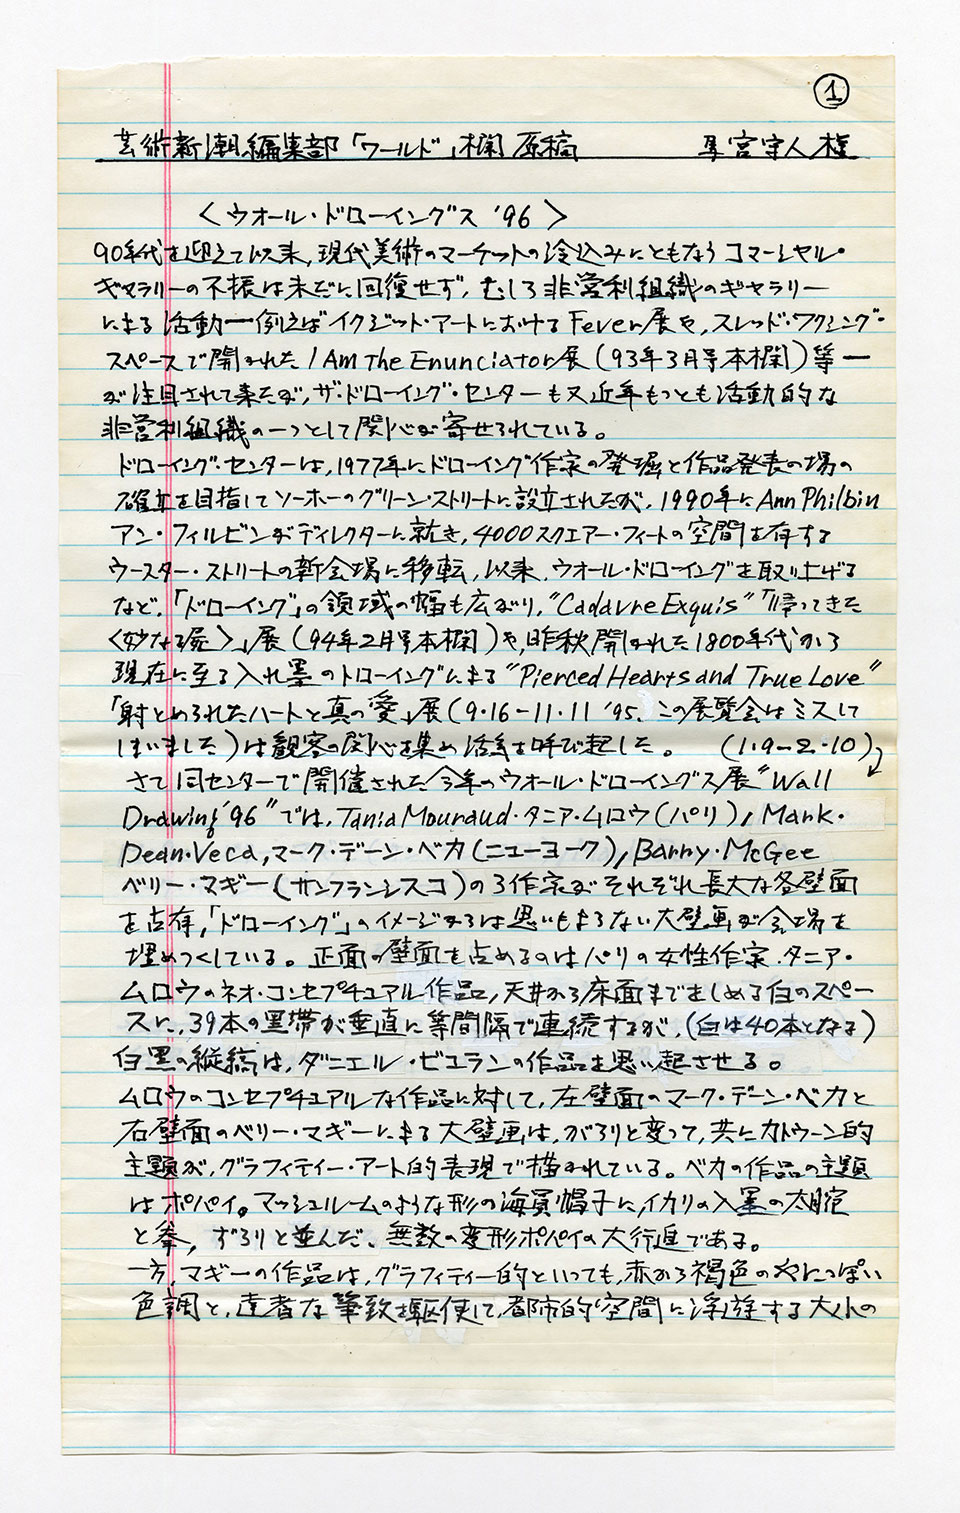 ①
芸術新潮編集部「ワールド」欄原稿 宮守人様
〈ウオール・ドローイングス '96〉
90年代を迎えて以来,現代美術のマーケットの冷込みにともなうコマーシャル・
ギャラリーの不振は未だに回復せず,むしろ非営利組織のギャラリー
による活動―例えばイクジット・アートにおけるFever展や,スレッド・ワクシング・
スペースで開かれたI Am The Enunciator展(93年3月号本欄)等―
が注目されて来たが,ザ・ドローイング・センターも又近年もっとも活動的な
非営利組織の一つとして関心が寄せられている。
ドローイング・センターは,1977年にドローイング作家の発掘と作品発表の場の
確立を目指してソーホーのグリーン・ストリートに設立されたが,1990年にAnn Philbin
アン・フィルビンがディレクターに就き,4000スクエアー・フィートの空間を有する
ウースター・ストリートの新会場に移転,以来,ウオール・ドローイングを取り上げる
など,「ドローイング」の領域の幅も広がり,"Cadavre Exquis"「帰ってきた
〈妙なる屍〉」展(94年2月号本欄)や,昨秋開かれた1800年代から
現在に至る入れ墨のドローイングによる"Pierced Hearts and True Love"
「射とめられたハートと真の愛」展(9・16-11・11 '95,この展覧会はミスして
しまいました)は観客の関心を集め活気を呼び起した。 (1・9-2・10)
さて同センターで開催された今年のウオール・ドローイングス展"Wall
Drawing '96"では,Tania Mouraud・タニア・ムロウ(パリ),Mark・
Dean・Veca,マーク・デーン・ベカ(ニューヨーク),Barry・McGee
ベリー・マギー(サンフランシスコ)の3作家がそれぞれ長大な各壁面
を占有,「ドローイング」のイメージからは思いもよらない大壁画が会場を
埋めつくしている。正面の壁面を占めるのはパリの女性作家・タニア・
ムロウのネオ・コンセプチュアル作品,天井から床面までをしめる白のスペー
スに,39本の黒帯が垂直に等間隔で連続するが,(白は40本となる)
白黒の縦縞は,ダニエル・ビュランの作品を思い起させる。
ムロウのコンセプチュアルな作品に対して,左壁面のマーク・デーン・ベカと
右壁面のベリー・マギーによる大壁画は,がらりと変って,共にカトゥーン的
主題が,グラフィティー・アート的表現で描かれている。ベカの作品の主題
はポパイ。マッシュルームのような形の海員帽子に,イカリの入墨の太腕
と拳,ずらりと並んだ、無数の変形ポパイの大行進である。
一方,マギーの作品は,グラフィティー的といっても,赤から褐色のやにっぽい
色調と,達者な筆致を駆使して,都市的空間に浮遊する大小の